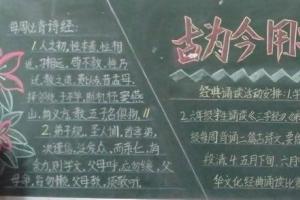 每周必背诗经:
1.人之初,性本善,性相
近,习相远,苟不教,性乃
迁,教之道,贵以专,昔孟母,
择邻处,子不学,断机杼,窦燕
山,有义方,教五子,名俱扬。
2.弟子规,圣人训,首孝弟,
次谨信,泛爱众,而亲仁,有
余力,则学文,父母呼,应勿缓,父
母命,行勿懒,父母教,须敬听
古为今用
经典诵读活动安排:1.
2.六年级学生诵读《三字经》
级每周背诵二篇古诗文,
段,满4.五月下旬,六
华文化经典诵读比赛